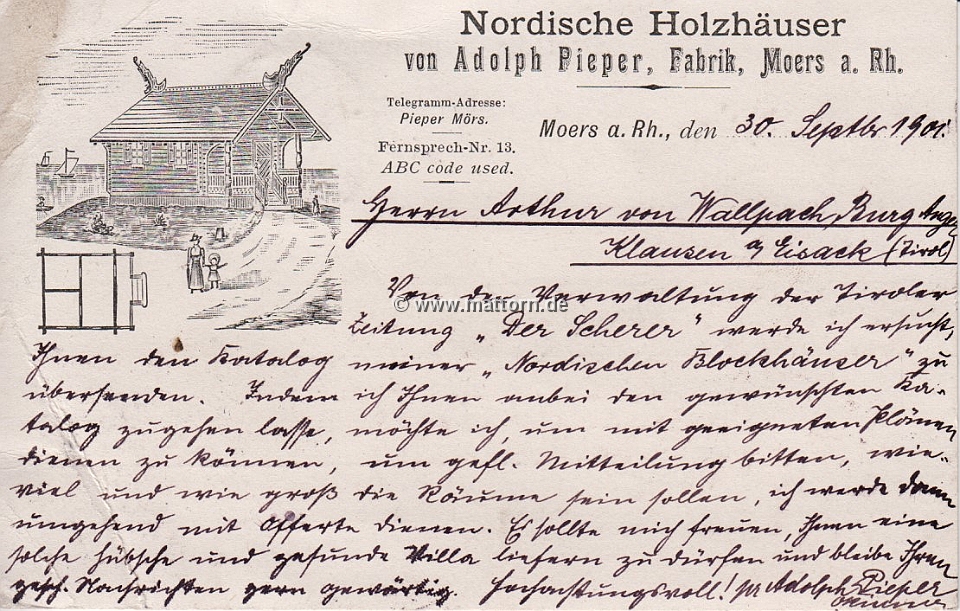 Nordische Holzhäuser
von Adolph Pieper, Fabrik, Moers a. Rh.
Telegramm-Adresse:
Pieper Mörs.
Fernsprech-Nr. 13.
ABC code used.
Moers a. Rh., den 30. Septbr 1901.
Herrn Arthur von Wallpach, Burg Anger
Klausen a/ Eisack (Tirol)
Von der Verwaltung der Tiroler
© www.mattorn.de
Zeitung „Der Scherer" werde ich ersucht,
Ihnen den Katalog meiner „Nordischen Blockhäuser" zu
übersenden. Indem ich Ihnen anbei den gewünschten Ka-
talog zugehen lasse, möchte ich, um mit geeigneten Plänen
dienen zu können, um gefl. Mitteilung bitten, wie-
viel und wie groß die Räume sein sollen, ich werde dann
umgehend mit Offerte dienen. Es sollte mich freuen, Ihnen eine
solche hübsche und gesunde Villa liefern zu dürfen und bleibe Ihren
gesch. Nachrichten gern gewärtig. Hochachtungsvoll! pr Adolph Pieper